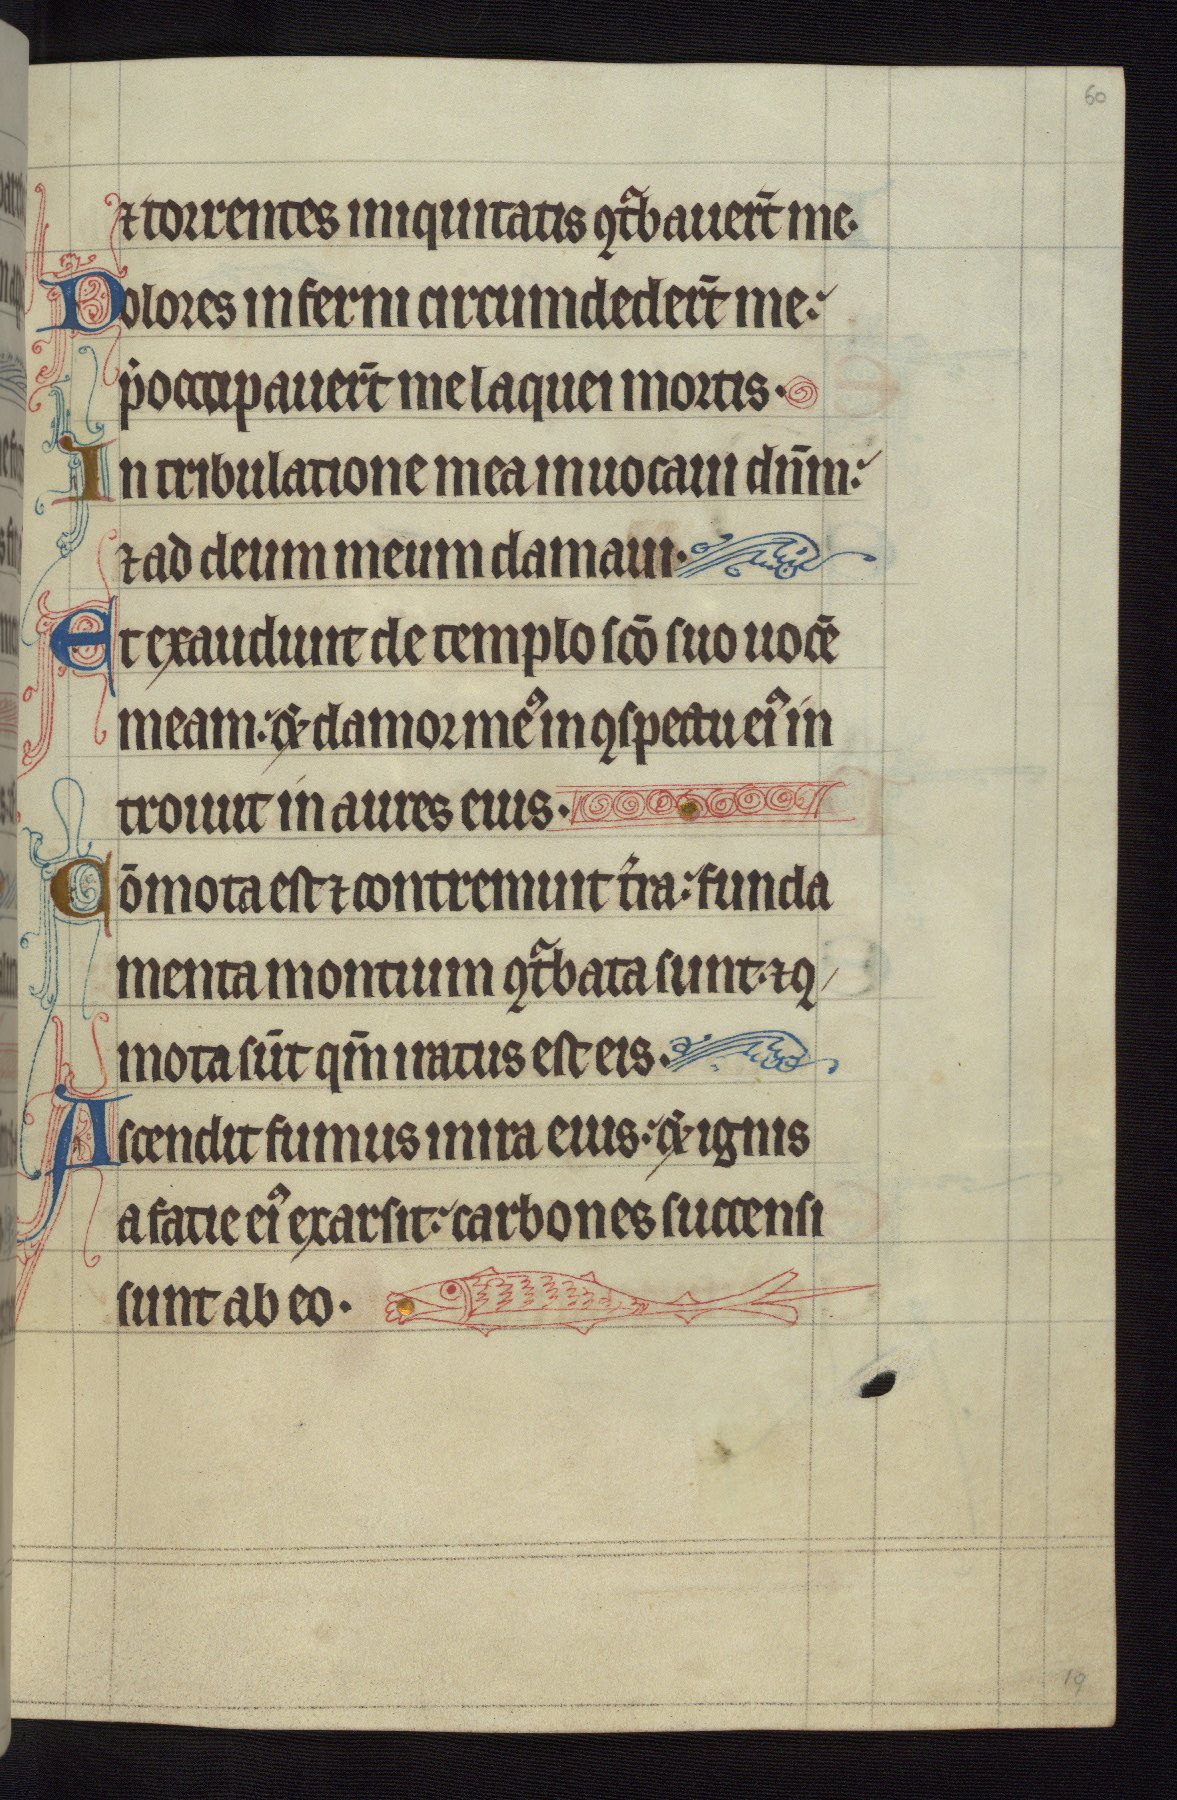 60
⁊ torrentes iniquitatis ꝯtᷓbauert̄ me.
Dolores inferni circumdedert̄ me:
p̓occupauert̄ me laquei mortis.
In tribulatione mea inuocaui dn̄m:
⁊ ad deum meum clamaui.
Et exaudiuit de templo sc̄o suo uocē
meam: & clamor meꝰ in ꝯspectu eiꝰ in
troiuit in aures eius.
Cōmota est ⁊ contremuit t̓ra: funda
menta montium ꝯtᷓbata sunt. ⁊ ꝯ
mota sūt qm̄ iratus est eis.
Ascendit fumus in ira eius: & ignis
a facie eiꝰ exarsit: carbones succensi
sunt ab eo.
19